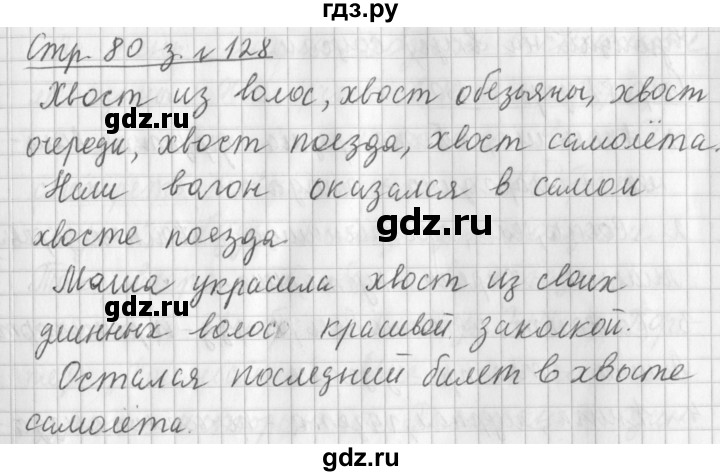 гдз.ру
Стр. 80 з. № 128
Хвост из волос, хвост обезьяны, хвост
gdz.ru
очереди, хвост поезда, хвост самолёта.
Наш вагон оказался в самом
gdz.ru
хвосте поезда
Маша украсила хвост из своих
длинных волос красивой заколкой.
gdz.ru
Остался последний билет в хвосте
самолёта.